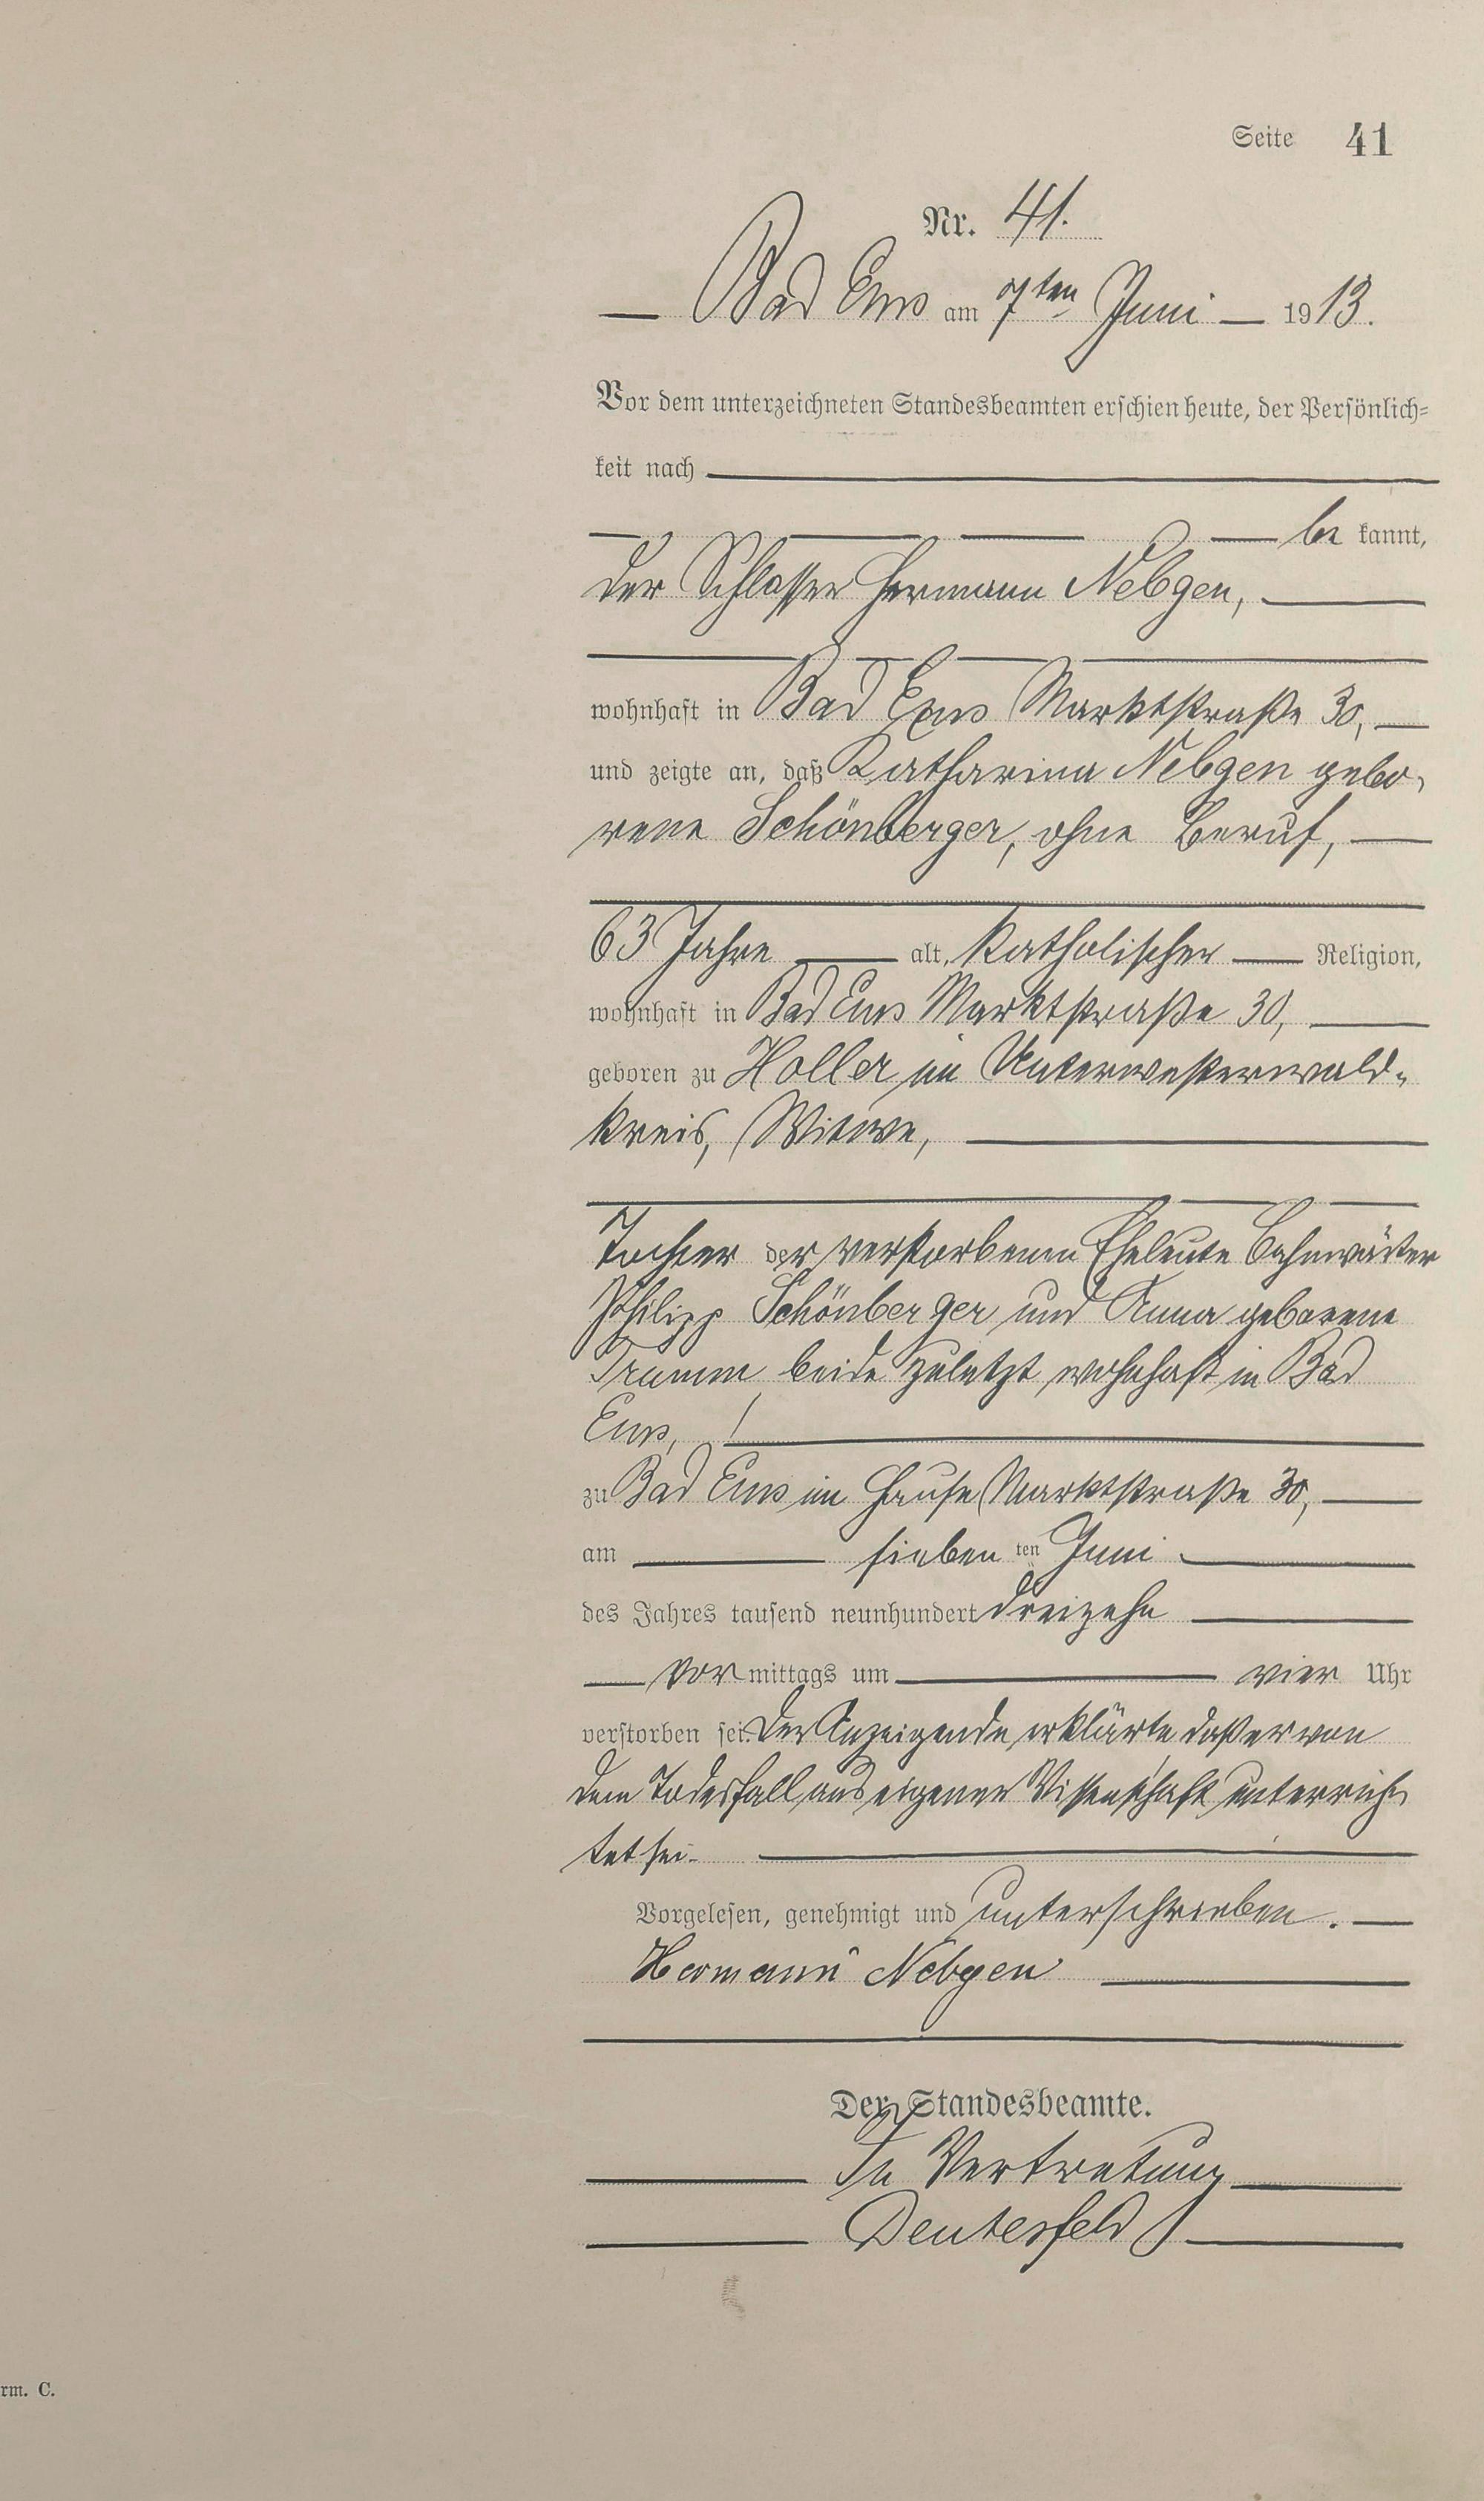 Seite 41
Nr. 41.
Bad Ems am 7ten Juni 1913.
Vor dem unterzeichneten Standesbeamten erschien heute, der Persönlich=
keit nach
be kannt,
der Schlosser Hermann Nebgen,
wohnhaft in Bad Ems Marktstraße 30,
und zeigte an, daß Katharina Nebgen gebo,
rene Schönberger, ohne Beruf,
63 Jahre alt, katholischer Religion,
wohnhaft in Bad Ems Marktstraße 30,
geboren zu Holler im Unterwesterwald„
kreis, Witwe,
Tochter der verstorbenen Eheleute Bahnwärter
Philipp Schönberger und Anna geborene
Tramm beide zuletzt wohnhaft in Bad
Ems, !
zu Bad Ems im Hause Marktstraße 30,
am sieben ten Juni
des Jahres tausend neunhundert dreizehn
Vor mittags um vier Uhr
verstorben sei. Der Anzeigende erklärte daß er von
dem Todesfall aus eigener Wissenschaft unterrich„
tet sei.
Vorgelesen, genehmigt und unterschrieben.
Hermann Nebgen
Der Standesbeamte.
In Vertretung
Deutesfeld
rm. C.